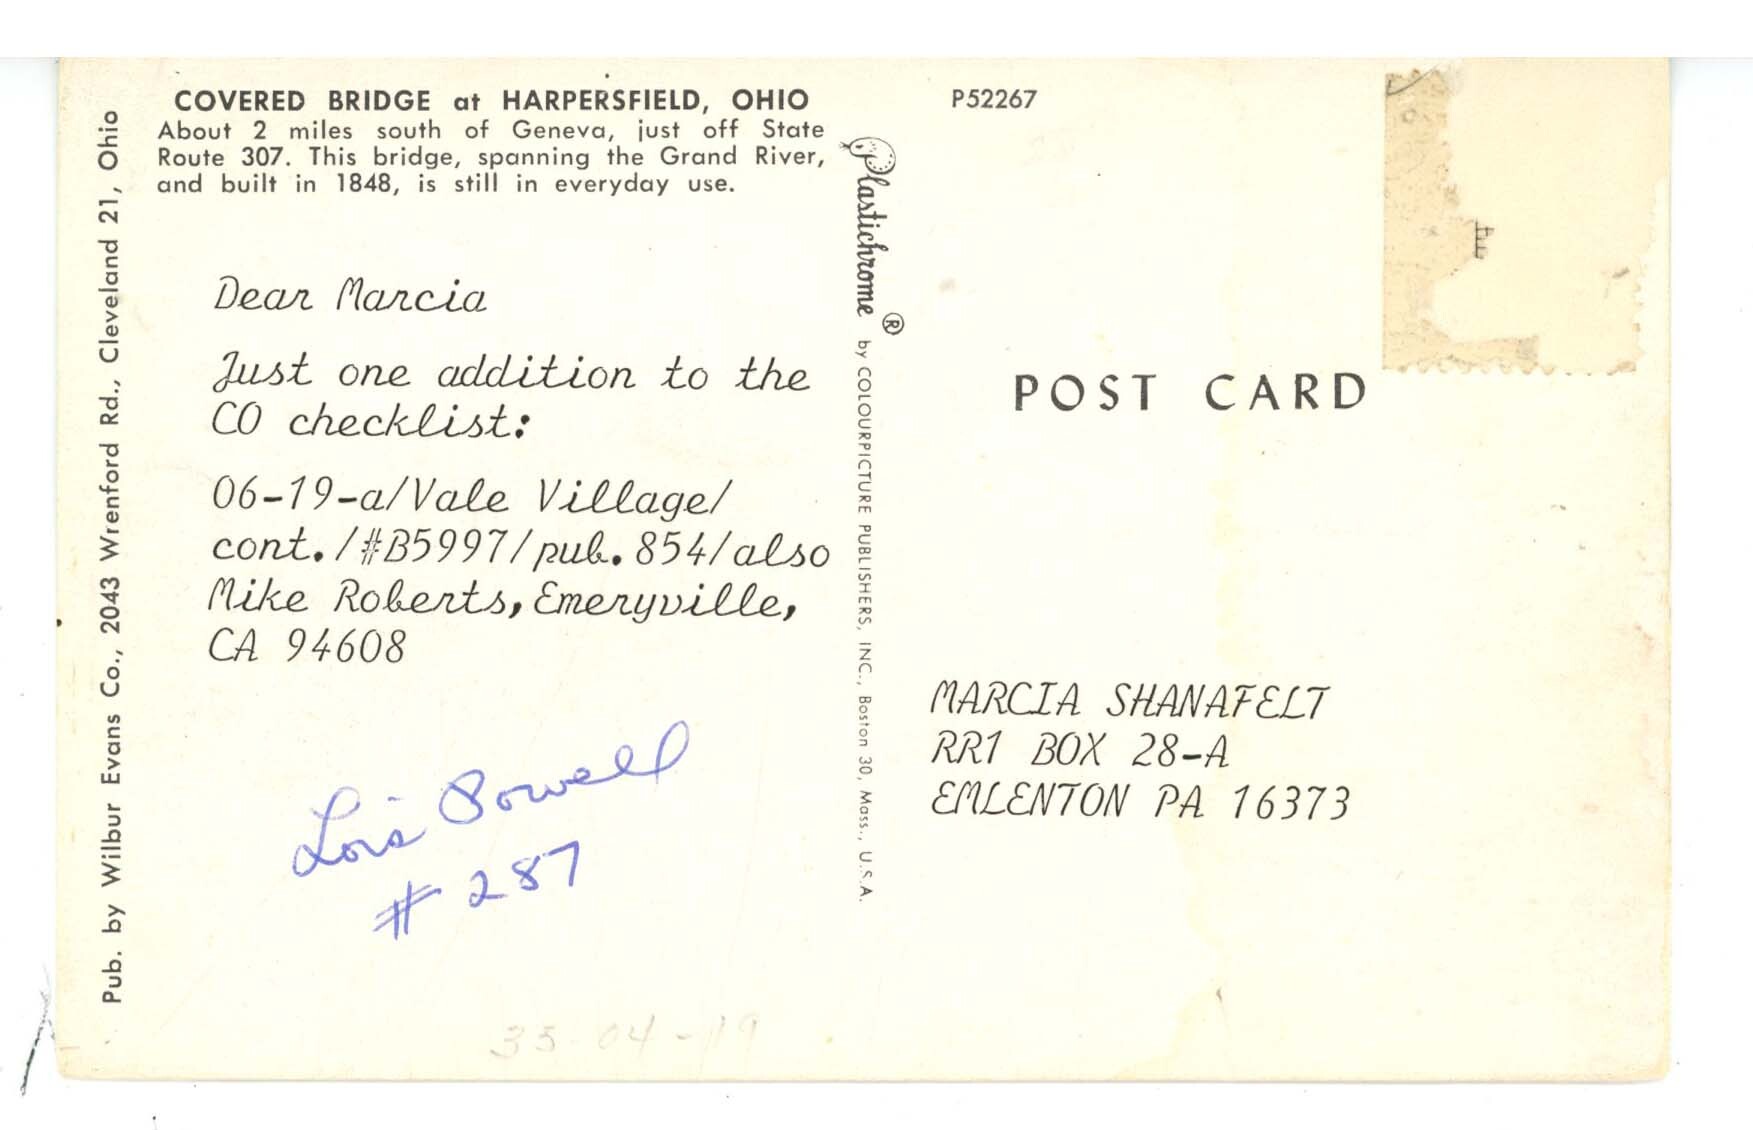 COVERED BRIDGE at HARPERSFIELD, OHIO
About 2 miles south of Geneva, just off State
Route 307. This bridge, spanning the Grand River,
and built in 1848, is still in everyday use.
P52267
Pub. by Wilbur Evans Co., 2043 Wrenford Rd., Cleveland 21, Ohio
Dear Marcia
Just one addition to the
CO checklist:
06-19-a/Vale Village/
cont./#B5997/pub. 854/also
Mike Roberts, Emeryville,
CA 94608
Lois Powell
# 287
35-04-19
Plastichrome ® by COLOURPICTURE PUBLISHERS, INC., Boston 30, Mass., U.S.A.
POST CARD
MARCIA SHANAFELT
RR1 BOX 28-A
EMLENTON PA 16373